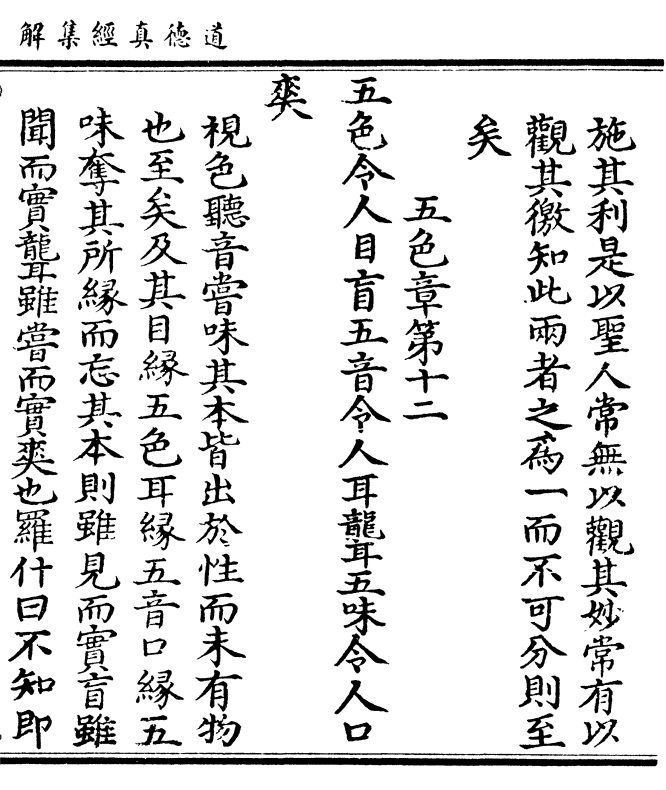 道德真經集解
施其利是以聖人常無以觀其妙常有以
觀其徼知此兩者之為一而不可分則至
矣
五色章第十二
五色令人目盲五音令人耳聾五味令人口
爽
視色聽音嘗味其本皆出於性而未有物
也至矣及其目緣五色耳緣五音口緣五
味奪其所緣而忘其本則雖見而實盲雖
聞而實聾雖嘗而實爽也羅什曰不知即